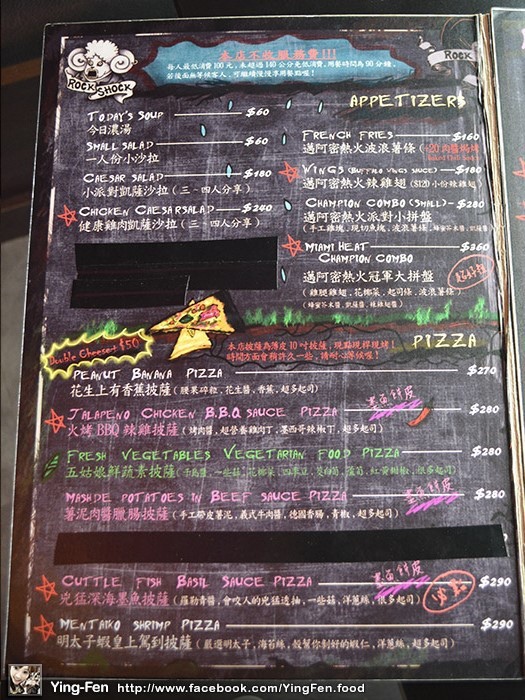 ROCK SHOCK
本店不收服務費!!!
每人最低消費100元，未超過140公分免低消費，用餐時間為90分鐘，
若後面無等候客人，可繼續慢慢享用餐點喔！
ROCK
APPETIZERS
TODAY'S SOUP $60
今日濃湯
SMALL SALAD $60
一人份小沙拉
CAESAR SALAD $180
小派對凱薩沙拉（三、四人分享）
CHICKEN CAESAR SALAD $240
健康雞肉凱薩沙拉（三、四人分享）
FRENCH FRIES $160
邁阿密熱火波浪薯條
WINGS (BUFFALO WINGS SAUCE) $180
邁阿密熱火辣雞翅（$120小份辣雞翅）
CHAMPION COMBO (SMALL) $280
邁阿密熱火派對小拼盤
（手工雞塊，現切魚塊，波浪薯條，蜂蜜芥末醬，凱薩醬）
MIAMI HEAT $360
CHAMPION COMBO
邁阿密熱火冠軍大拼盤
（雞腿雞翅，花椰菜，起司條，波浪薯條）
（蜂蜜芥末醬，凱薩醬，辣雞翅醬）
Double Cheese+$50
本店披薩為薄皮10吋披薩，現點現桿現烤！
時間方面會稍許久一些，請耐心等候喔！
PIZZA
PEANUT BANANA PIZZA $270
花生上有香蕉披薩（腰果碎粒，花生醬，香蕉，超多起司）
JALAPENO CHICKEN B.B.Q SAUCE PIZZA $280
墨西餅皮
火烤BBQ辣雞披薩（烤肉醬，超營養雞肉丁，墨西哥辣椒丁，超多起司）
FRESH VEGETABLES VEGETARIAN FOOD PIZZA $280
五姑娘鮮蔬素披薩
MASHDE POTATOES IN BEEF SAUCE PIZZA $280
薯泥肉醬臘腸披薩（手工帶皮薯泥，義式牛肉醬，德國香腸，青椒，超多起司）
CUTTLE FISH BASIL SAUCE PIZZA $290
兇猛深海墨魚披薩（羅勒青醬，會咬人的兇猛透抽，一些菇，洋蔥絲，很多起司）
MENTAIKO SHRIMP PIZZA $290
明太子蝦皇上駕到披薩（嚴選明太子，海苔絲，殼幫你剝好的蝦仁，洋蔥絲，超多起司）
Ying-Fen http://www.facebook.com/YingFen.food